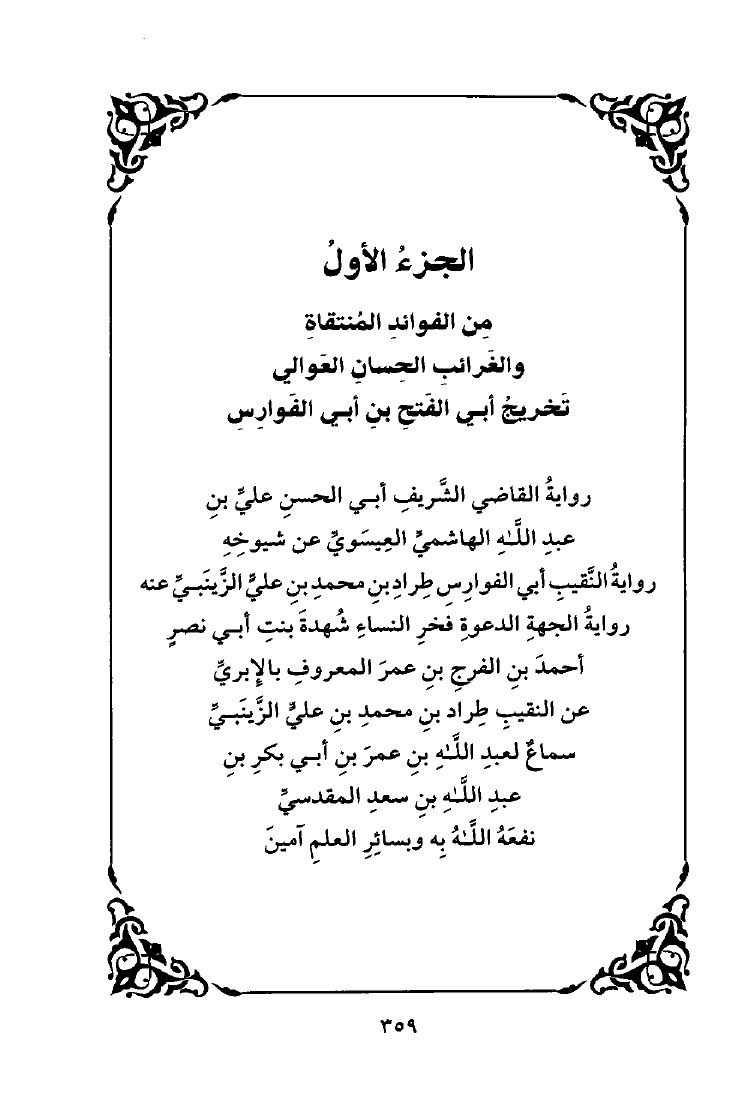 الجزءُ الأولُ
مِن الفوائدِ المُنتقاةِ
والغَرائبِ الحِسانِ العَوالي
تَخريجُ أبي الفَتحِ بنِ أبي الفَوارِسِ
روايةُ القاضي الشَّريفِ أبي الحسنِ عليِّ بنِ
عبدِ اللَّهِ الهاشميِّ العِيسَويِّ عن شيوخِهِ
روايةُ النَّقيبِ أبي الفوارسِ طِرادِ بنِ محمدِ بنِ عليٍّ الزَّينَبيِّ عنه
روايةُ الجهةِ الدعوةِ فخرِ النساءِ شُهدةَ بنتِ أبي نصرٍ
أحمدَ بنِ الفرجِ بنِ عمرَ المعروفِ بالإبريِّ
عن النقيبِ طِراد بنِ محمدِ بنِ عليٍّ الزَّينَبيِّ
سماعٌ لعبدِ اللَّهِ بنِ عمرَ بنِ أبي بكرِ بنِ
عبدِ اللَّهِ بنِ سعدِ المقدسيِّ
نفعَهُ اللَّهُ بِه وبسائِرِ العلمِ آمينَ
٣٥٩